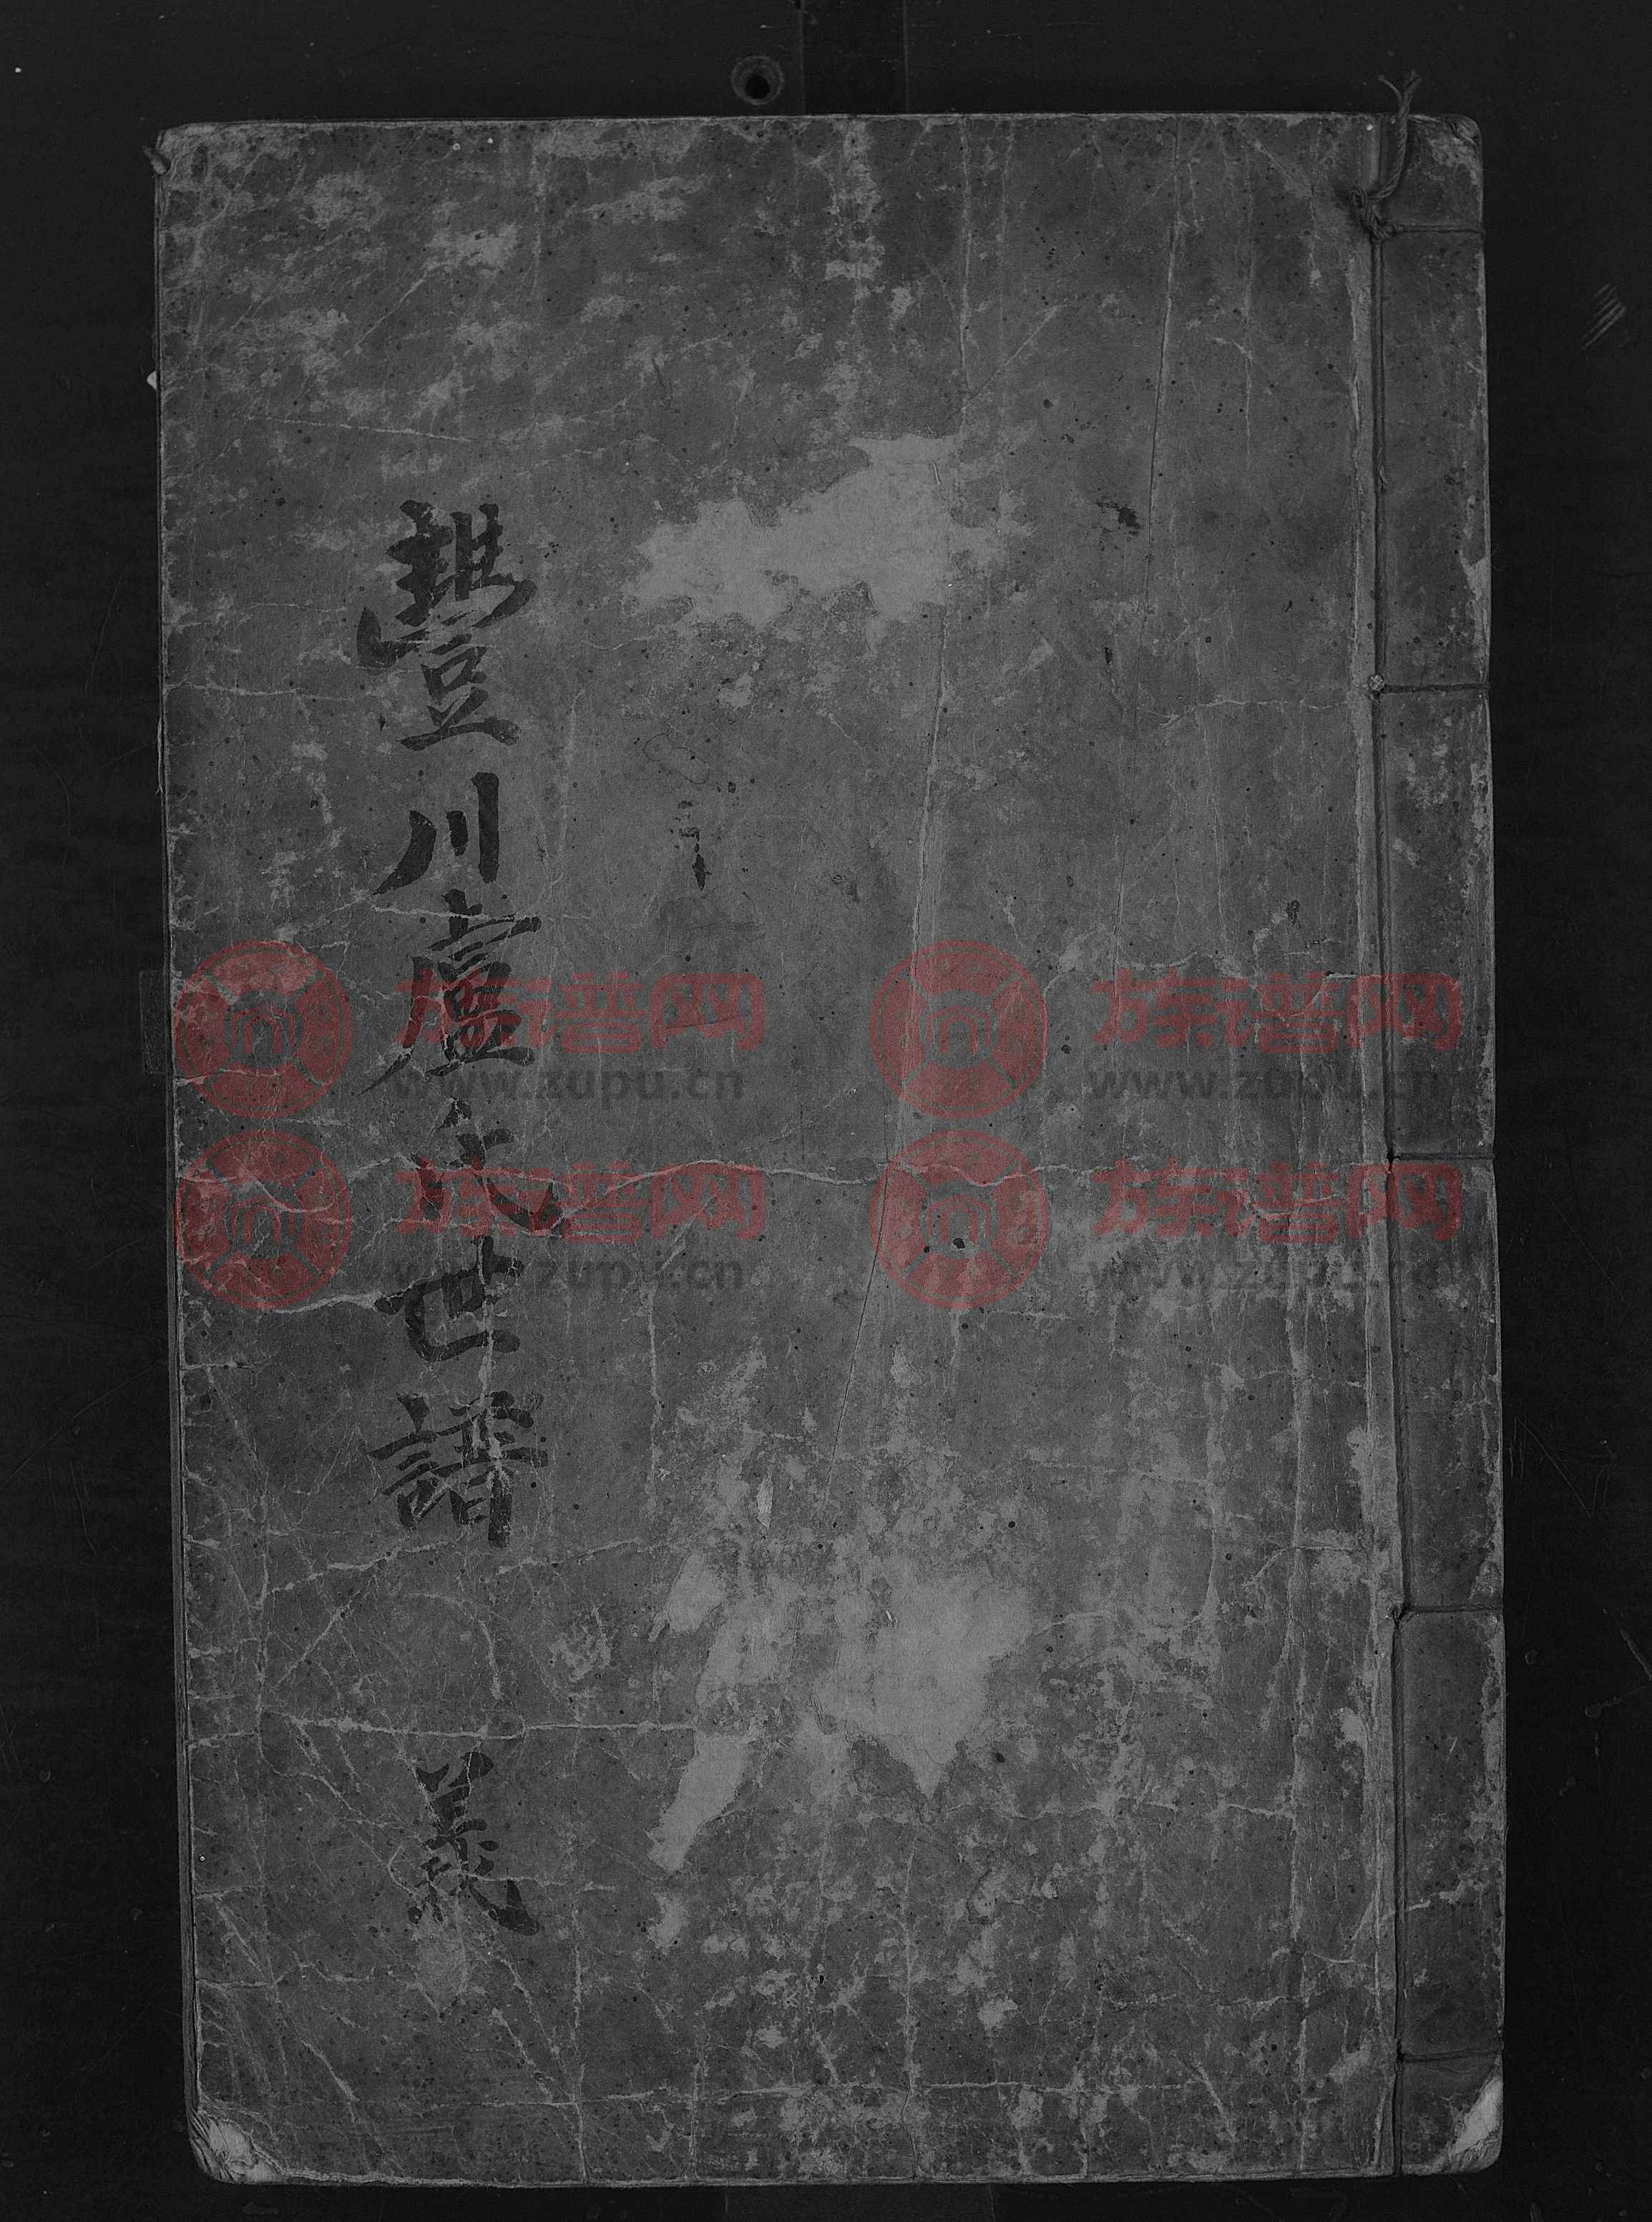 豐川盧氏世譜 義
族谱网
www.zupu.cn
族谱网
www.zupu.cn
族谱网
www.zupu.cn
族谱网
www.zupu.cn